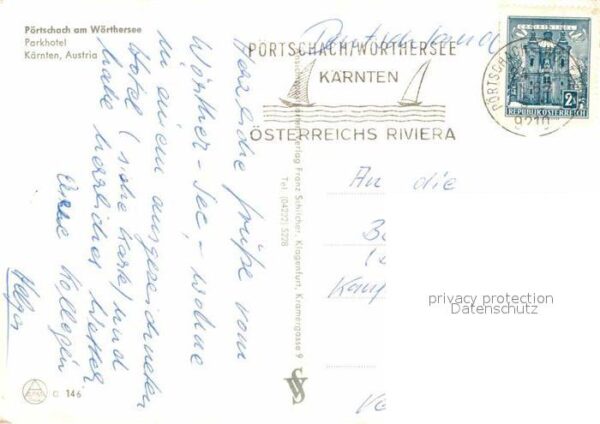 Pörtschach am Wörthersee
Parkhotel
Kärnten, Austria
Herzliche Grüße vom
Wörther-See, - wohne
in einem ausgezeichneten
Hotel (siehe Karte) und
habe herrliches Wetter
Kollegin
Helga
C 146
Verlag Franz Schilcher, Klagenfurt, Kramergasse 9
Tel. (04222) 5278
Deutschland
PÖRTSCHACH/WÖRTHERSEE
KÄRNTEN
ÖSTERREICHS RIVIERA
PÖRTSCHACH
9210
2
REPUBLIK ÖSTERREICH
An die
privacy protection
Datenschutz